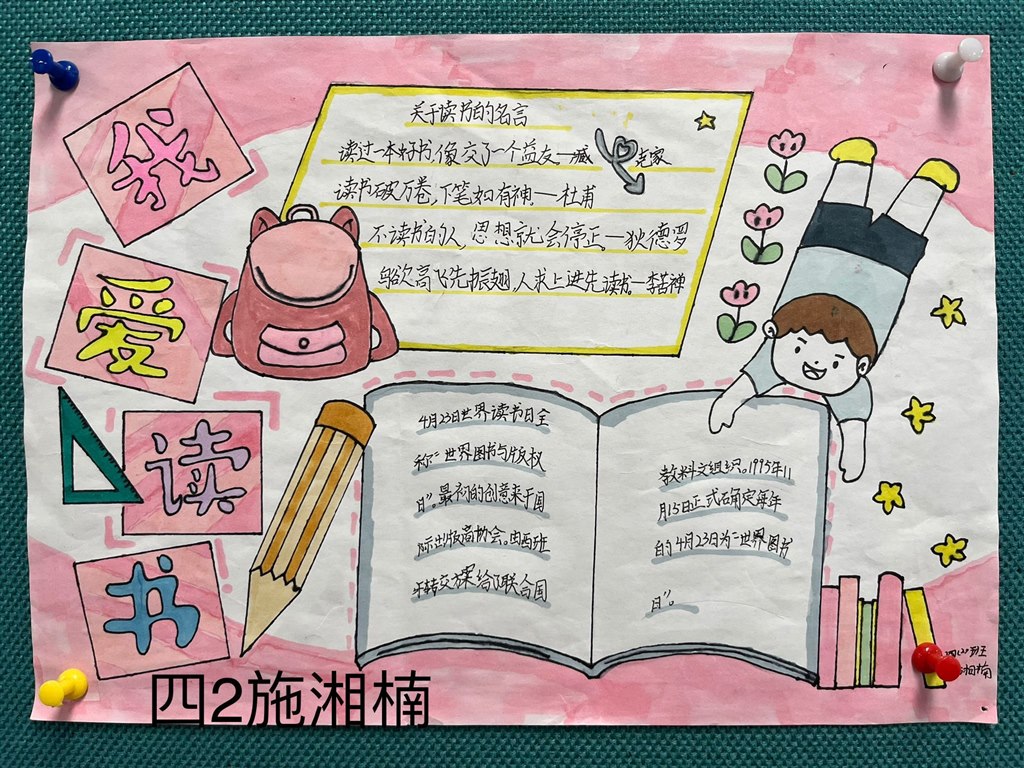 我
爱
读
书
关于读书的名言
读过一本好书,像交了一个益友—臧克家
读书破万卷,下笔如有神—杜甫
不读书的人,思想就会停止。—狄德罗
鸟欲高飞先振翅,人求上进先读书。—李苦禅
4月23日世界读书日全
称"世界图书与版权
日"。最初的创意来于国
际出版商协会。由西班
牙转交方案给了联合国
教科文组织。1995年11
月15日正式确定每年
的4月23日为"世界图书
日"。
四(2)班
湘楠
四2施湘楠